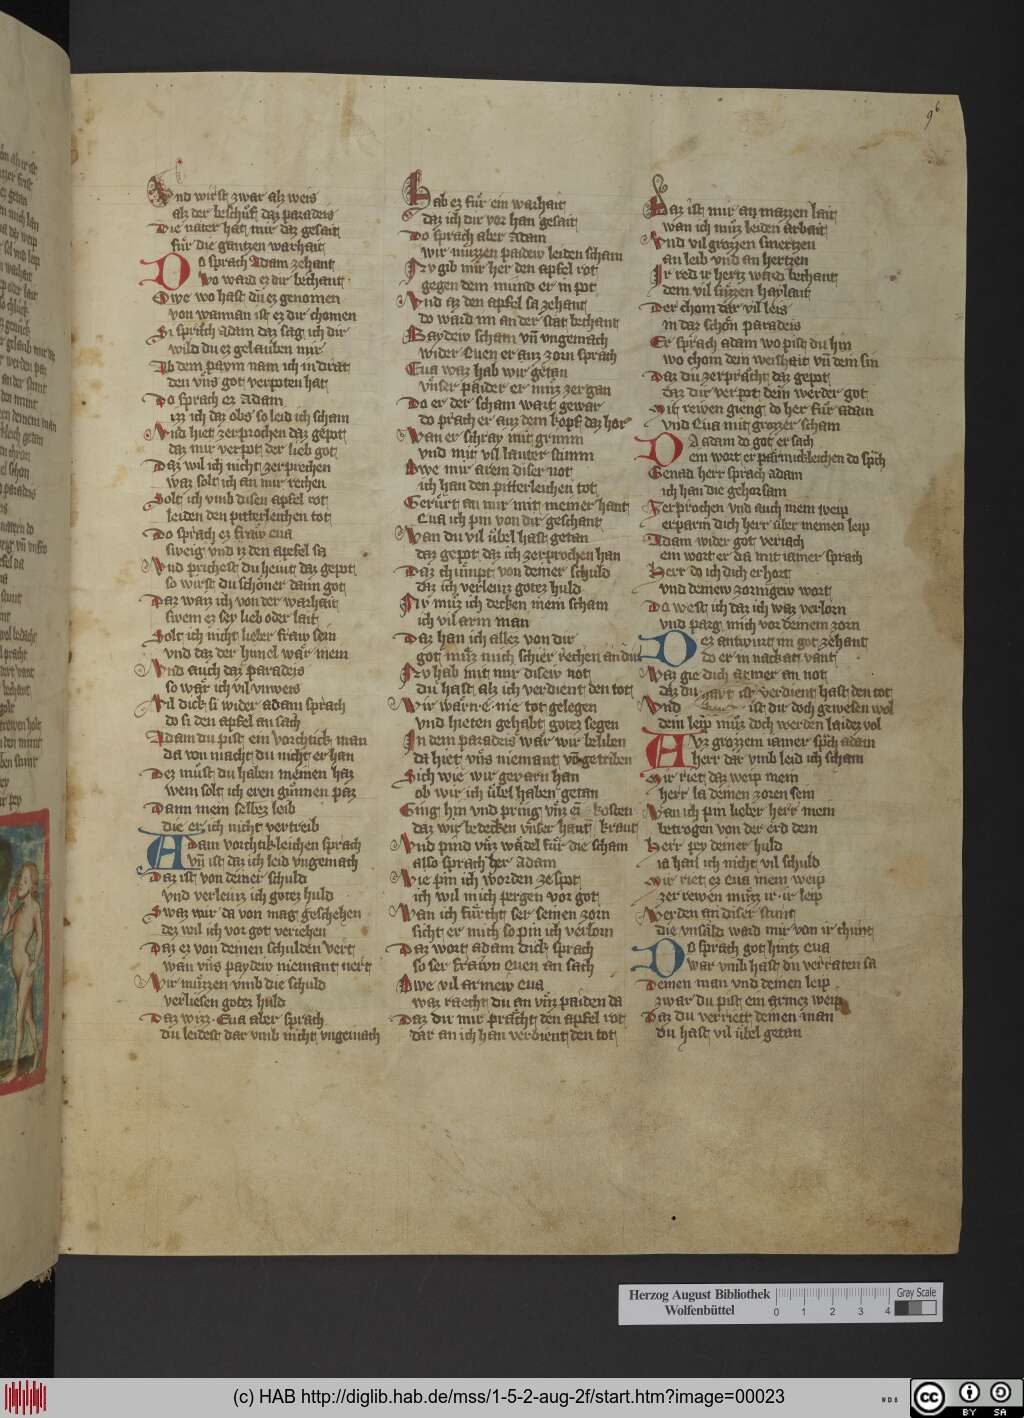 96
Vnd wirst zwar alz weis
alz der beschuf daz paradeis
Die nater hat mir daz gesait
fur die gantzen warhait
Do sprach Adam zehant
wo ward ez dir bechant
Owe wo hast du ez genomen
von wannan ist ez dir chomen
Si sprach Adam daz sag ich dir
wild du ez gelauben mir
Ab dem paym nam ich in drat
den vns got verpoten hat
Do sprach ez Adam
izz ich daz obs so leid ich scham
Vnd hiet zerprochen daz gepot
daz mir verpot der lieb got
Daz wil ich nicht zerprechen
waz solt ich an mir rechen
Solt ich vmb disen apfel rot
leiden den pitterleichen tot
Do sprach ez fraw eua
sweig vnd iz den apfel sa
Vnd prichest du heint daz gepot
so wirst du schoner dann got
Daz waiz ich von der warhait
swem ez sey lieb oder lait
Solt ich nicht lieber fraw sein
vnd daz der himel war mein
Vnd auch daz paradeis
so war ich vil vnweis
Vil dick si wider adam sprach
do si den apfel an sach
Adam du pist ein vorchtick man
da von macht du nicht er han
Dez must du haben meinen haz
wem solt ich eren gunnen paz
Dann mein selbez leib
die er ich nicht vertreib
Adam vorchtikleichen sprach
vn ist daz ich leid vngemach
Daz ist von deiner schuld
vnd verleuz ich gotez huld
Swaz mir da von mag geschehen
dez wil ich vor got veriehen
Daz ez von deinen schulden vert
wan vns paydew niemant nert
Wir muzzen vmb die schuld
verliesen gotez huld
Daz wizz Eua aber sprach
du leidest dar vmb nicht vngemach
Hab ez fur ein warhait
daz ich dir vor han gesait
Do sprach aber Adam
wir muzzen paidew leiden scham
Nv gib mir her den apfel rot
gegen dem mund er in pot
Vnd az den apfel sa zehant
do ward im an der stat bechant
Baydew scham vn vngemach
wider Euen er auz zorn sprach
Eua waz hab wir getan
vnser paider er muz zergan
Do er der scham wart gewar
do prach er auz dem kopf daz hor
Wan er schray mit grimm
vnd mit vil lauter stimm
Owe mir arem diser not
ich han den pitterleichen tot
Gerurt an mir mit meiner hant
Eua ich pin von dir geschant
Wan du vil ubel hast getan
daz gepot daz ich zerprochen han
Daz chumpt von deiner schuld
daz ich verleuz gotez huld
Nv muz ich decken mein scham
ich vil arm man
Daz han ich allez von dir
got muz mich schier rechen an dir
Nv hab mit mir disew not
du hast alz ich verdient den tot
Wir warn e nie tot gelegen
vnd hieten gehabt gotez segen
In dem paradeis war wir beliben
da hiet vns niemant vo getriben
Sich wie wir gevarn han
ob wir ich ubel haben getan
Ging hin vnd pring vnz ei kosten
daz wir bedecken vnser haut kraut
Vnd pind vnz wadel fur die scham
also sprach her Adam
Wie pin ich worden ze spot
ich wil mich pergen vor got
Wan ich furcht ser seinen zorn
sicht er mich so pin ich verlorn
Daz wort adam dick sprach
so ser frawn Euen an sach
Owe vil armew eua
waz raecht du an vnz paiden da
Daz du mir pracht den apfel rot
dar an ich han verdient den tot
Daz ist mir an mazzen lait
wan ich muz leiden arbait
Vnd vil grozzen smertzen
an leib vnd an hertzen
Ir red ir hertz ward bechant
dem vil suzzen haylant
Der chom dar vil leis
in daz schon paradeis
Er sprach adam wo pist du hin
wo chom dein weishait vn dein sin
Daz du zerpracht daz gepot
daz dir verpot dein werder got
Mit rewen gieng do her fur adam
vnd Eua mit grozzer scham
Da adam do got er sach
ein wort er parmickleichen do sprch
Genad herr sprach adam
ich han die gehorsam
Zerprochen vnd auch mein weip
erparm dich herr uber meinen leip
Adam wider got veriach
ein wort er da mit iamer sprach
Herr do ich dich erhort
vnd deinew zornigew wort
Do west ich daz ich waz verlorn
vnd parg mich vor deinem zorn
Dez antwurt im got zehant
do er in nackatt vant
Waz gie dich armer an not
daz du hart ist verdient hast den tot
Vnd ist dir doch gewesen wol
dein leip muz doch werden laidez vol
Auz grozzem iamer sprch adam
herr dar vmb leid ich scham
Mir riet daz weip mein
herr la deinen zoren sein
Wan ich pin lieber herr mein
betrogen von der erd dein
Herr pey deiner huld
ia han ich nicht vil schuld
Mir riet ez eua mein weip
zer rewen muzz ir ir leip
Werden an diser stunt
die vnsald ward mir von ir chunt
Do sprach got hintz eua
war vmb hast du verraten sa
Deinen man vnd deinen leip
zwar du pist ein armez weip
Daz du verriett deinen man
du hast vil ubel getan
Herzog August Bibliothek
Wolfenbüttel
0 1 2 3 4
Gray Scale
(c) HAB http://diglib.hab.de/mss/1-5-2-aug-2f/start.htm?image=00023
WDB
cc BY SA